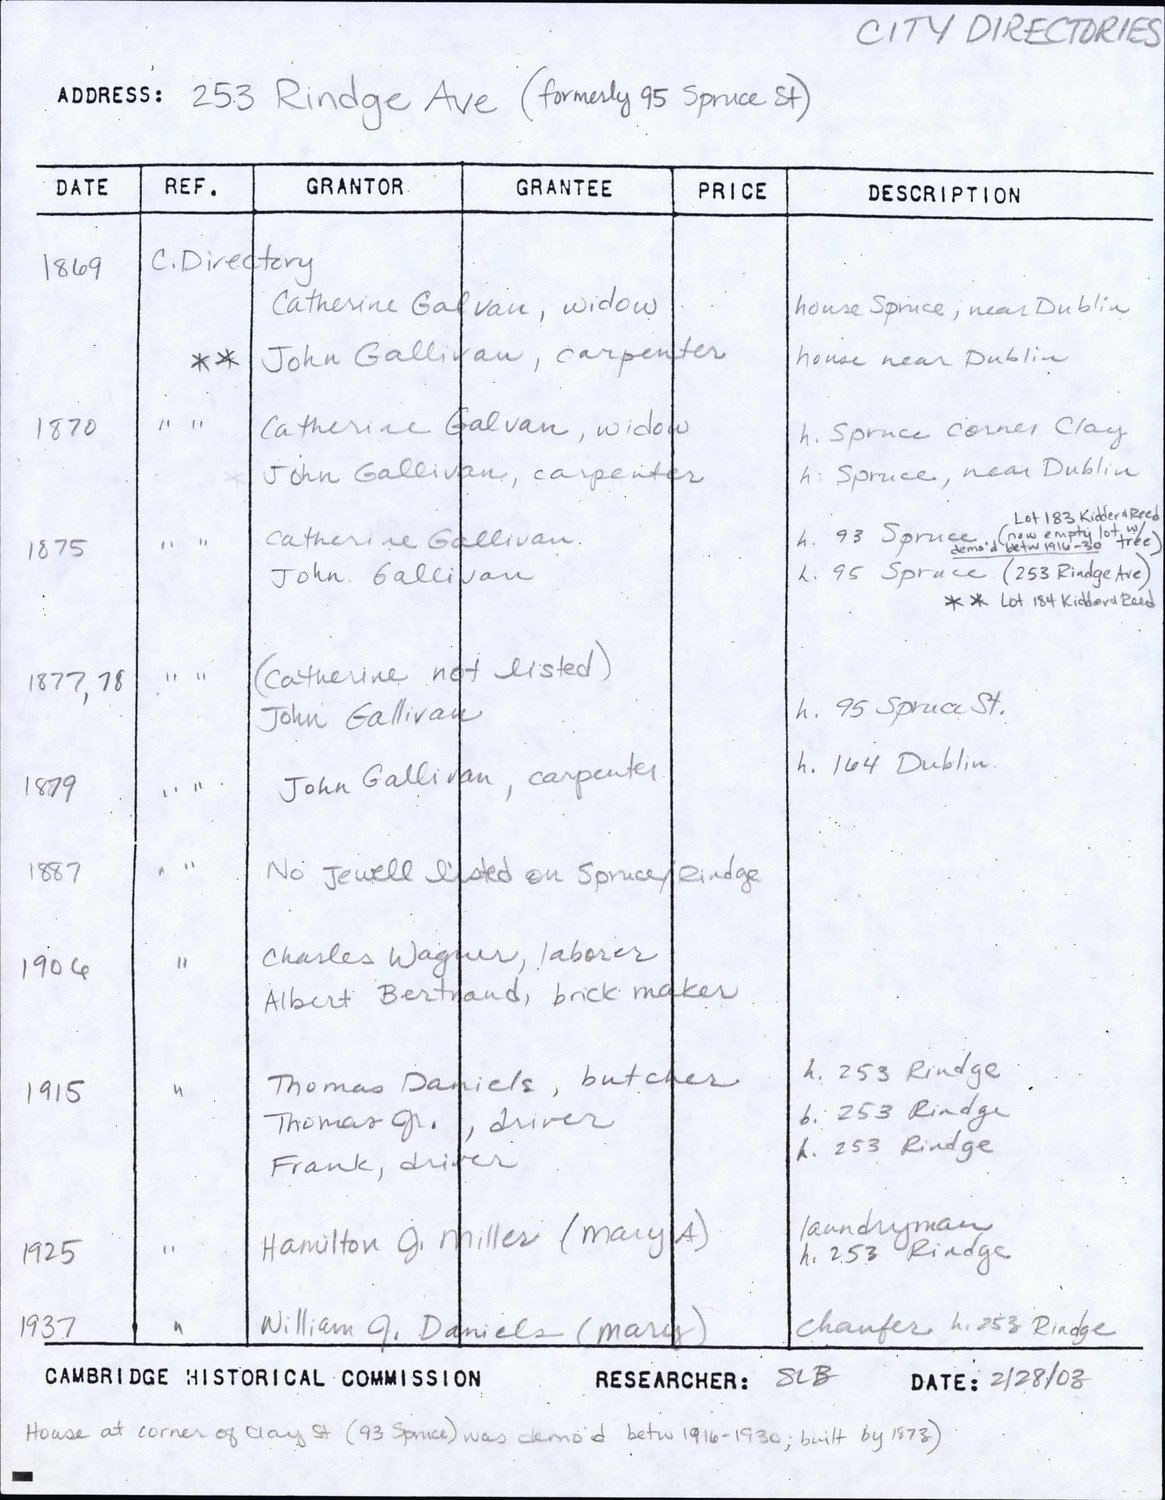 CITY DIRECTORIES
ADDRESS: 253 Rindge Ave (formerly 95 Spruce St)
DATE REF. GRANTOR GRANTEE PRICE DESCRIPTION
1869 C. Directory
Catherine Galvan, widow house Spruce, near Dublin
** John Gallivan, carpenter house near Dublin
1870 " " Catherine Galvan, widow h. Spruce corner Clay
* John Gallivan, carpenter h. Spruce, near Dublin
Lot 183 Kidder & Reed
1875 " " Catherine Gallivan. h. 93 Spruce (now empty lot w/ tree)
demo'd betw 1916-30
John Gallivan h. 95 Spruce (253 Rindge Ave)
** Lot 184 Kidder & Reed
1877, 78 " " (Catherine not listed)
John Gallivan h. 95 Spruce St.
1879 " " John Gallivan, carpenter h. 164 Dublin
1887 " " No Jewell listed on Spruce/Rindge
1906 " Charles Wagner, laborer
Albert Bertrand, brick maker
1915 " Thomas Daniels, butcher h. 253 Rindge
Thomas Jr., driver b. 253 Rindge
Frank, driver h. 253 Rindge
1925 " Hamilton J. Miller (Mary A) laundryman
h. 253 Rindge
1937 " William J. Daniels (Mary) chaufer h. 253 Rindge
CAMBRIDGE HISTORICAL COMMISSION RESEARCHER: SLB DATE: 2/28/03
House at corner of Clay St (93 Spruce) was demo'd betw 1916-1930; built by 1873)